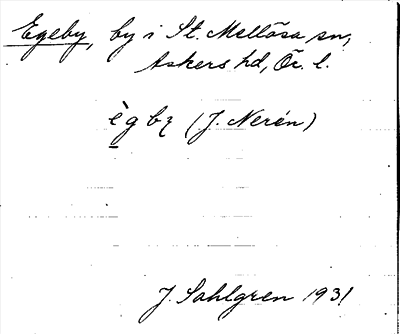 Egeby, by i St. Mellösa sn,
Askers hd, Ör. l.
(J. Nerén)
J. Sahlgren 1931